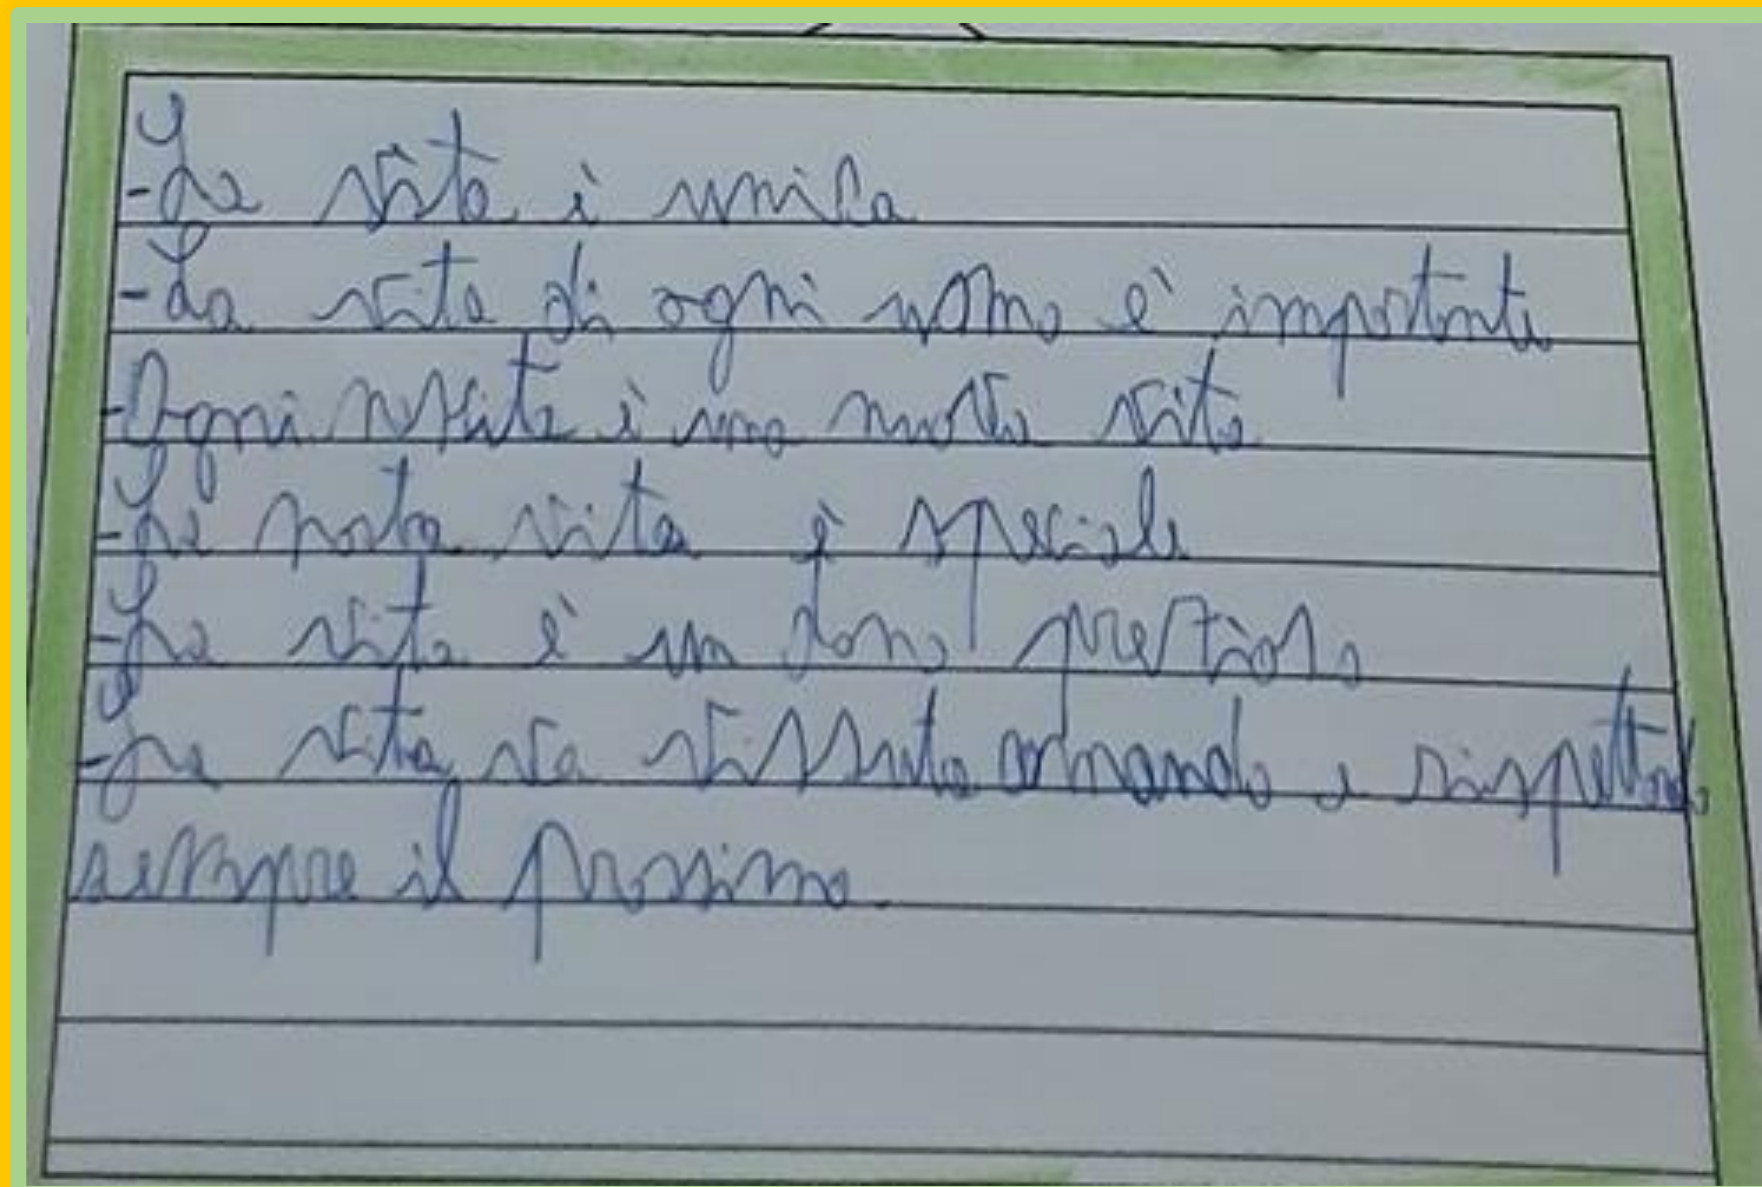 -La vita è unica
-La vita di ogni uomo è importante
-Ogni nascita è una nuova vita
-La nostra vita è speciale
-La vita è un dono prezioso
-La vita va vissuta amando e rispettando
sempre il prossimo.